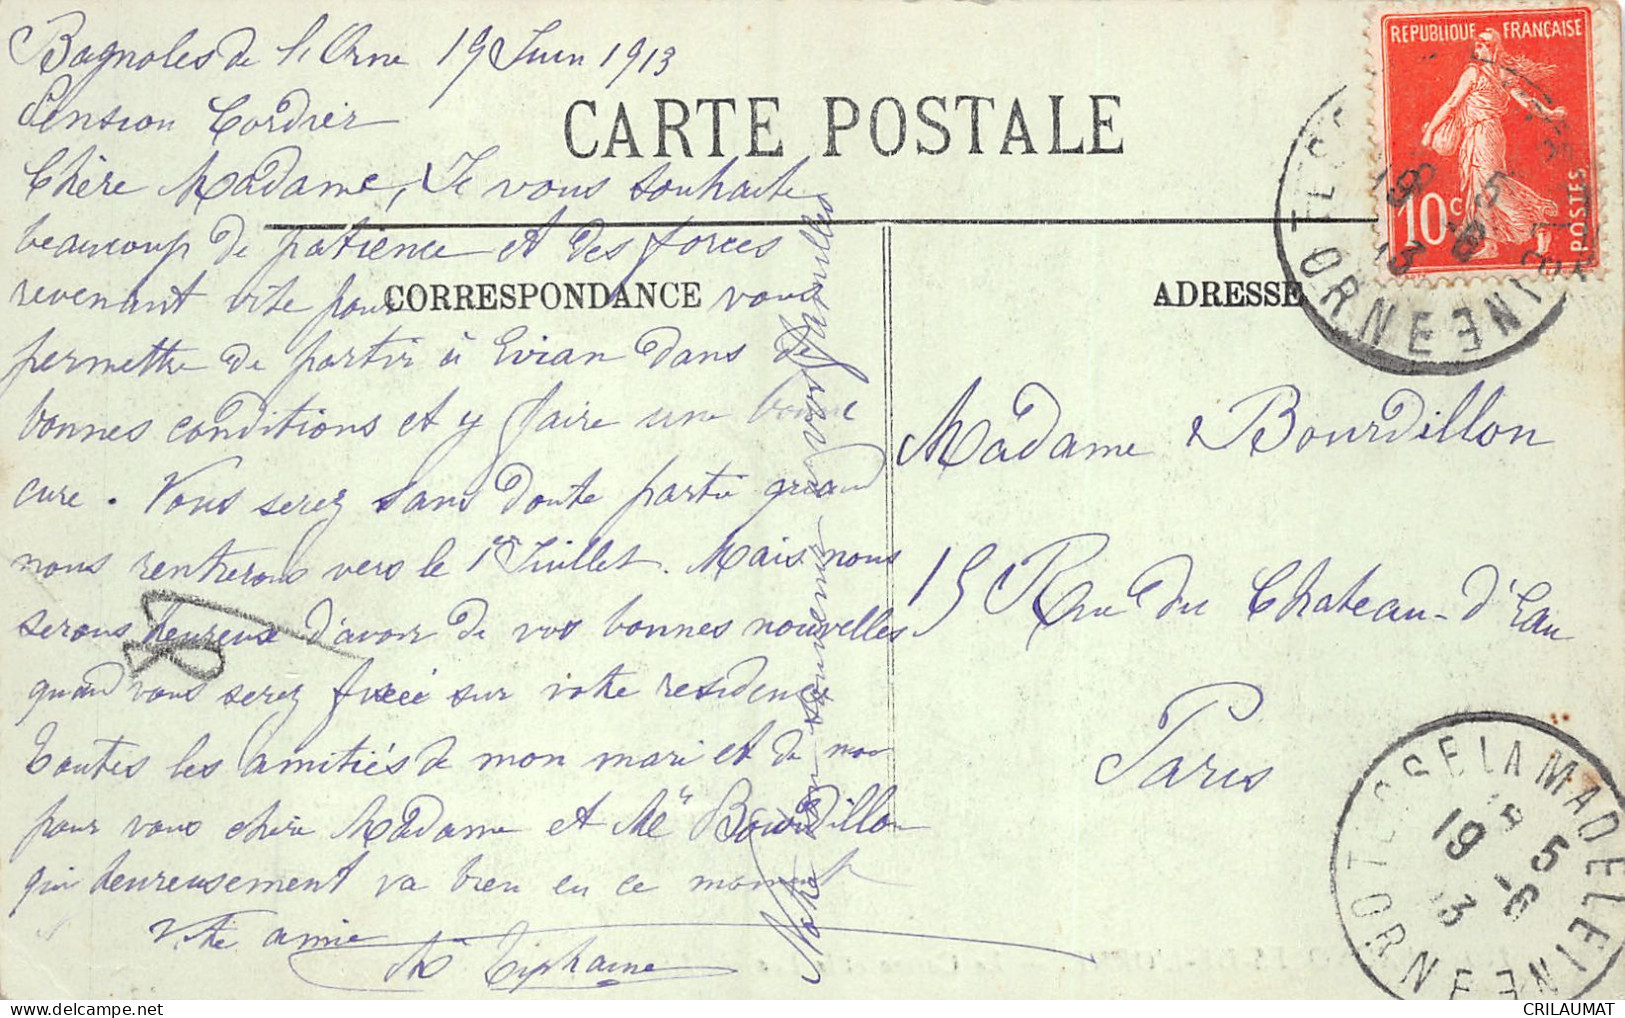 Bagnoles de l'Orne 19 Juin 1913
Pension Cordier
Chère Madame, Je vous souhaite
beaucoup de patience et des forces
revenant vite pour vous
permettre de partir à Evian dans de
bonnes conditions et y faire une bonne
cure. Vous serez sans doute partie quand
nous rentrerons vers le 1er Juillet. Mais nous
serons heureux d'avoir de vos bonnes nouvelles
quand vous serez fixée sur votre residence
Toutes les amitiés de mon mari et de moi
pour vous chère Madame et Me Bourdillon
qui heureusement va bien en ce moment
Votre amie
M Tiphaine
Notre bon souvenir à vos familles
CARTE POSTALE
CORRESPONDANCE
ADRESSE
Madame Bourdillon
15 Rue du Château-d'Eau
Paris
REPUBLIQUE FRANÇAISE
10 c
POSTES
ORNE
TESSE LA MADELEINE
19 5
13 -6
ORNE
CRILAUMAT